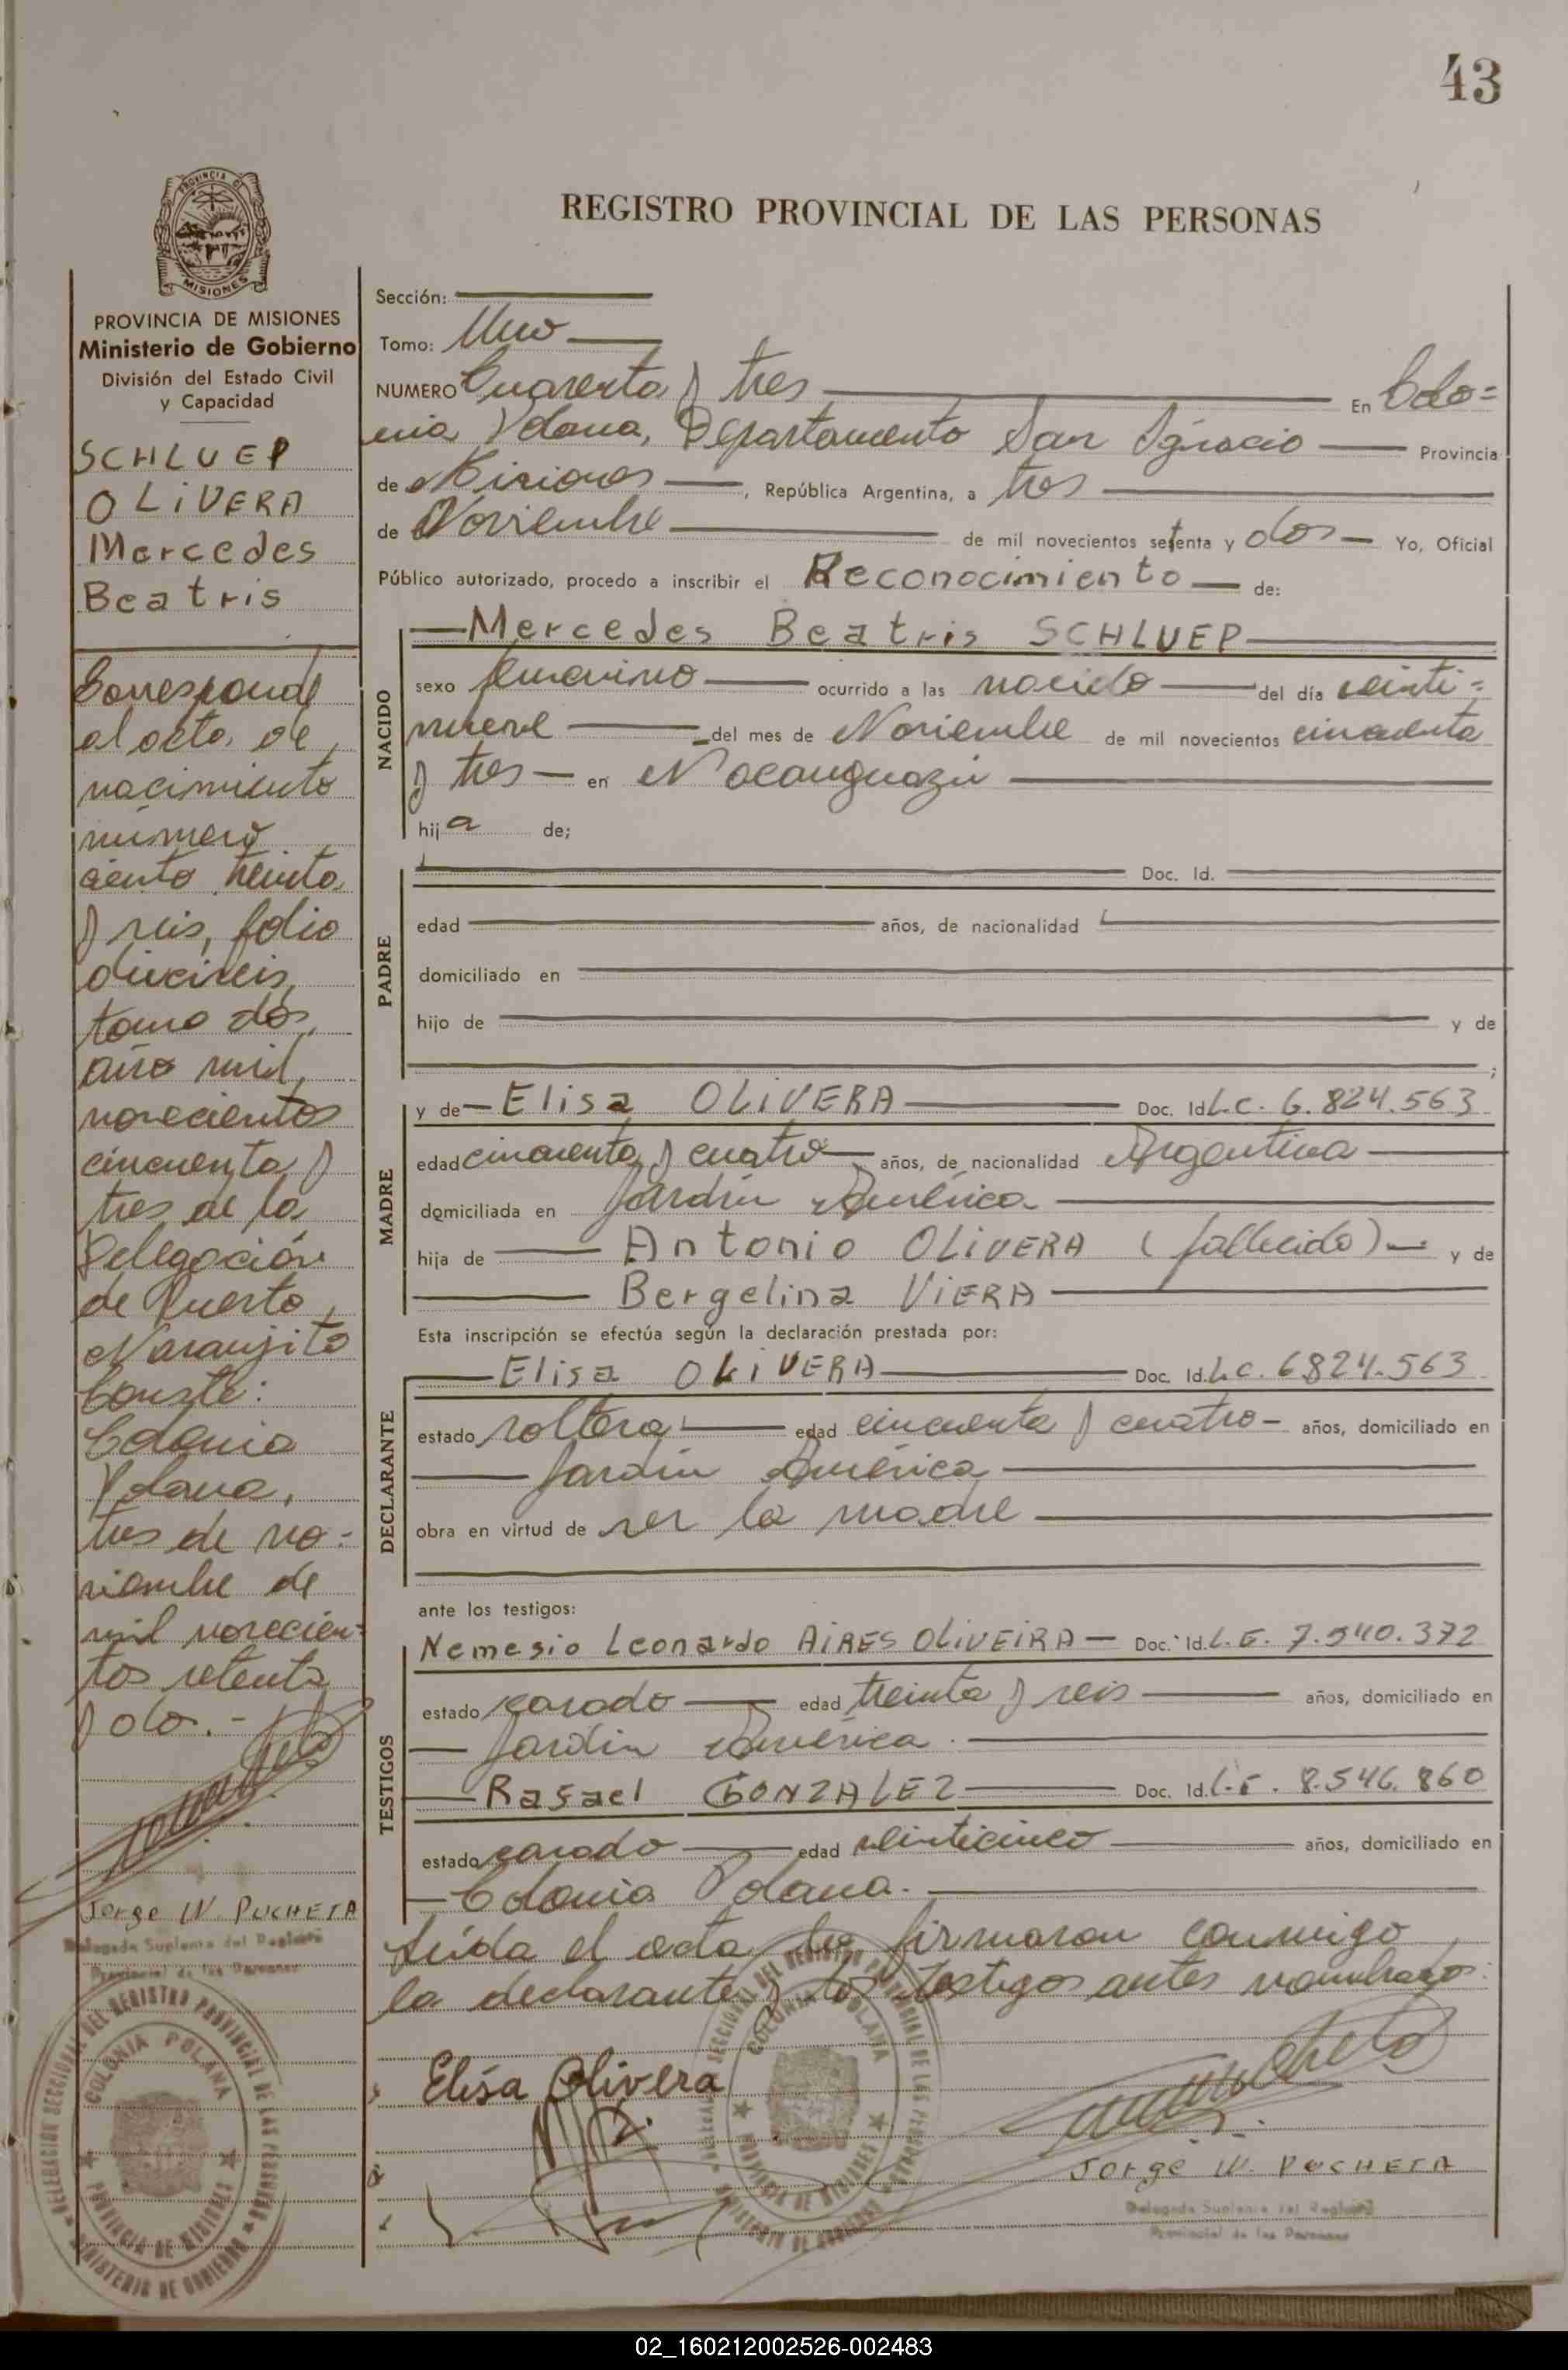 43
PROVINCIA DE
MISIONES
REGISTRO PROVINCIAL DE LAS PERSONAS
PROVINCIA DE MISIONES
Ministerio de Gobierno
División del Estado Civil
y Capacidad
SCHLUEP
OLIVERA
Mercedes
Beatris
Corresponde
al acta de
nacimiento
número
ciento treinta
y seis, folio
dieciseis,
tomo dos,
año mil
novecientos
cincuenta y
tres de la
Delegación
de Puerto
Naranjito
Conste:
Colonia
Polana,
tres de no=
viembre de
mil novecien=
tos setenta
y dos.-
Jorge W. PUCHETA
Delegado Suplente del Registro
Provincial de las Personas
DELEGACIÓN SECCIONAL DEL REGISTRO PROVINCIAL DE LAS PERSONAS
COLONIA POLANA
PROVINCIA DE MISIONES
MINISTERIO DE GOBIERNO
Sección:
Tomo: Uno
NUMERO Cuarenta y tres En Colo=
nia Polana, Departamento San Ignacio Provincia
de Misiones, República Argentina, a tres
de Noviembre de mil novecientos setenta y dos Yo, Oficial
Público autorizado, procedo a inscribir el Reconocimiento de:
NACIDO
Mercedes Beatris SCHLUEP
sexo femenino ocurrido a las nacido del día veinti=
nueve del mes de Noviembre de mil novecientos cincuenta
y tres en Ñacanguazú
hija de;
PADRE
Doc. Id.
edad años, de nacionalidad
domiciliado en
hijo de y de
;
MADRE
y de Elisa OLIVERA Doc. Id L.C. 6.824.563
edad cincuenta y cuatro años, de nacionalidad Argentina
domiciliada en Jardín América
hija de Antonio OLIVERA (fallecido) y de
Bergelina VIERA
Esta inscripción se efectúa según la declaración prestada por:
DECLARANTE
Elisa OLIVERA Doc. Id. L.C. 6824.563
estado soltera edad cincuenta y cuatro años, domiciliado en
Jardín América
obra en virtud de ser la madre
ante los testigos:
TESTIGOS
Nemesio Leonardo AIRES OLIVEIRA Doc. Id. L.E. 7.540.372
estado casado edad treinta y seis años, domiciliado en
Jardín América.
Rafael GONZALEZ Doc. Id. L.E. 8.546.860
estado casado edad veinticinco años, domiciliado en
Colonia Polana.
Leída el acta la firmaron conmigo
la declarante y los testigos antes nombrados:
Elisa Olivera
DELEGACIÓN SECCIONAL DEL REGISTRO PROVINCIAL DE LAS PERSONAS
COLONIA POLANA
PROVINCIA DE MISIONES
MINISTERIO DE GOBIERNO
Jorge W. PUCHETA
Delegado Suplente del Registro
Provincial de las Personas
02_160212002526-002483